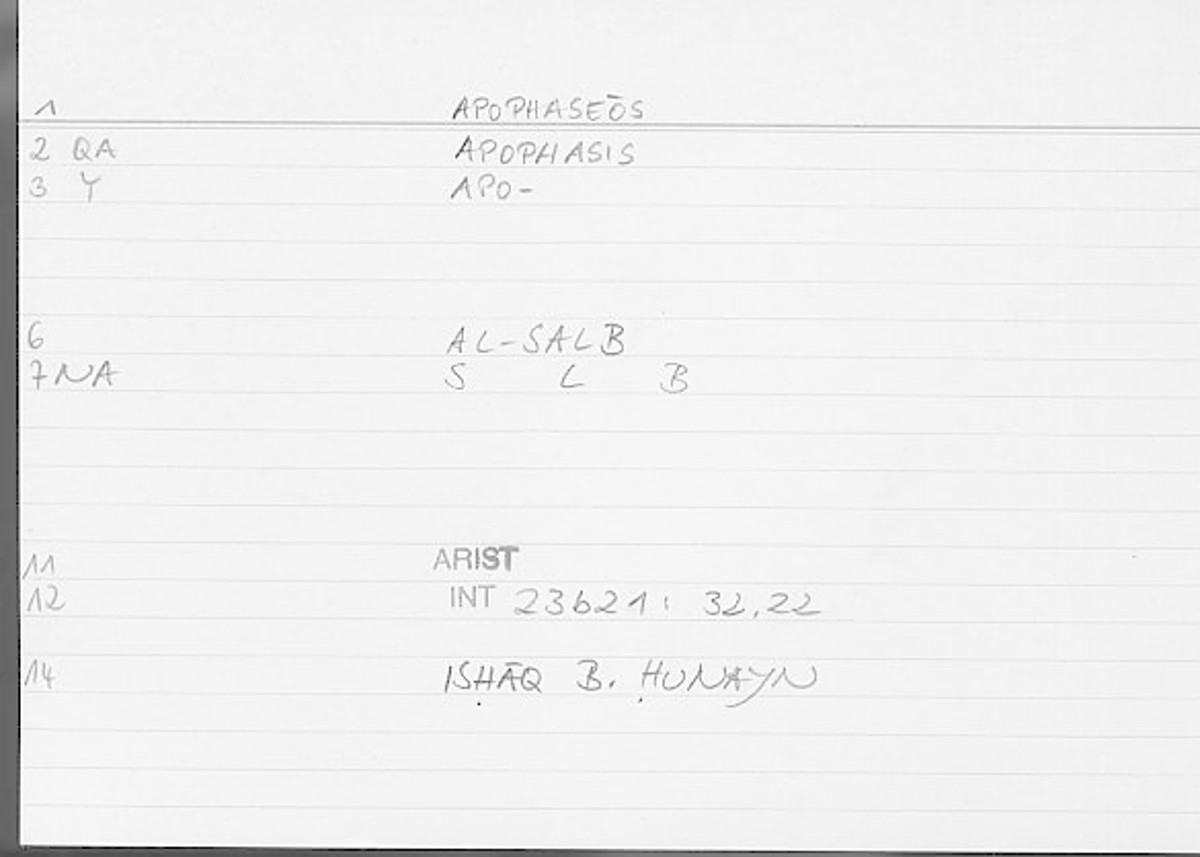 1 APOPHASEŌS
2 QA APOPHASIS
3 Y APO-
6 AL-SALB
7 NA S L B
11 ARIST
12 INT 23b21: 32,22
14 ISḤĀQ B. ḤUNAYN